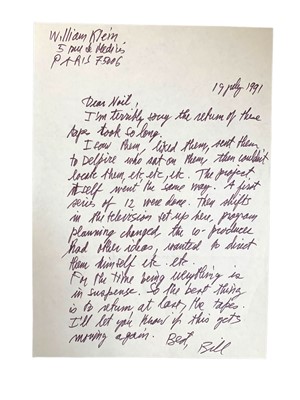 William Klein
5 rue de Médicis
PARIS 75006
19 July 1991
Dear Neil,
I'm terribly sorry the return of these
tapes took so long.
I saw them, liked them, sent them
to Delpire who sat on them, then couldn't
locate them, etc, etc, etc. The project
itself went the same way. A first
series of 12 were done. Then shifts
in the television set up here, program
planning changed, the co-producer
had other ideas, wanted to direct
them himself etc. etc.
For the time being everything is
in suspense. So the best thing
is to return at last the tapes.
I'll let you know if this gets
moving again.
Best,
Bill